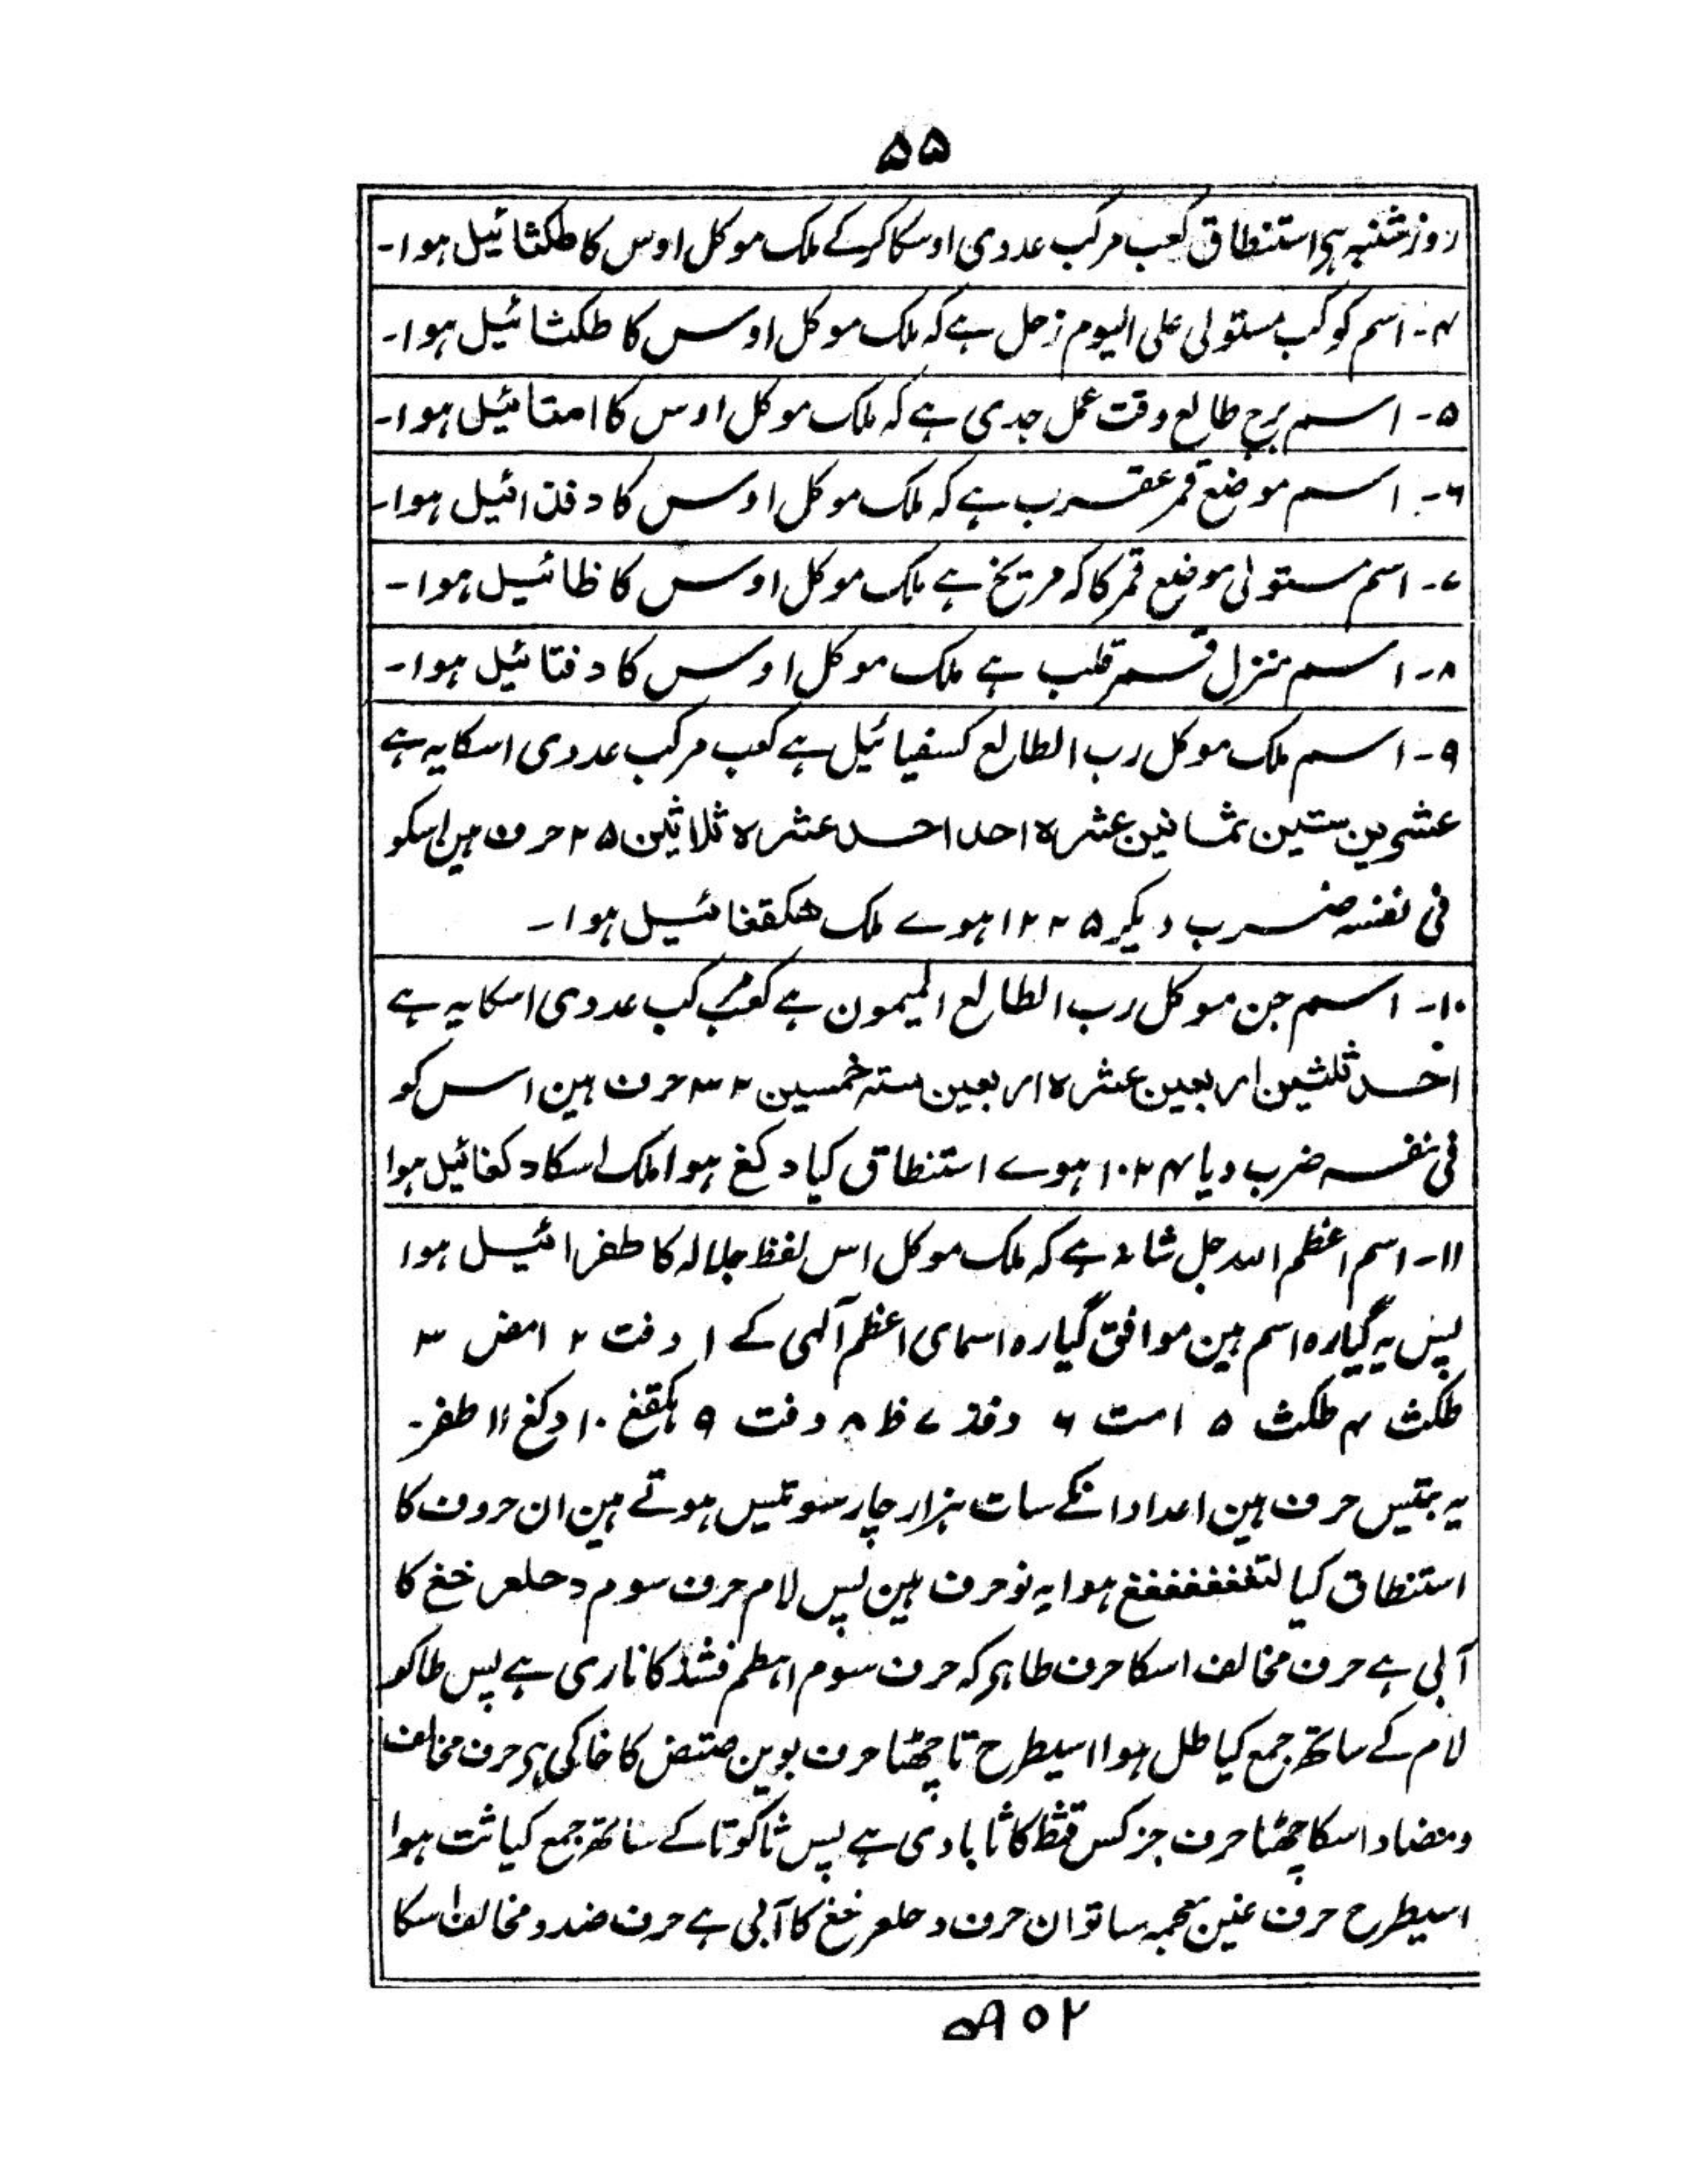 ۵۵
روز شنبہ ہی استنطاق کعب مرکب عددی اوسکا کرکے ملک موکل اوس کا طکثائیل ہوا۔
۴۔ اسم کوکب مستولی علی الیوم زحل ہے کہ ملک موکل اوس کا طکثائیل ہوا۔
۵۔ اسم برج طالع وقت عمل جدی ہے کہ ملک موکل اوس کا امتائیل ہوا۔
۶۔ اسم موضع قمر عقرب ہے کہ ملک موکل اوس کا دفذائیل ہوا۔
۷۔ اسم مستولی موضع قمر کا کہ مریخ ہے ملک موکل اوس کا ظائیل ہوا۔
۸۔ اسم منزل قمر قلب ہے ملک موکل اوس کا دفتائیل ہوا۔
۹۔ اسم ملک موکل رب الطالع کسفیائیل ہے کعب مرکب عددی اسکا یہ ہے
عشرین ستین ثمانین عشرہ احد احد عشرہ ثلاثین ۲۵ حرف ہین اسکو
فی نفسہ ضرب دیکر ۱۲۲۵ ہوے ملک ھکقغائیل ہوا۔
۱۰۔ اسم جن موکل رب الطالع المیمون ہے کعب مرکب عددی اسکا یہ ہے
احد ثلثین اربعین عشرہ اربعین ستہ خمسین ۳۲ حرف ہین اس کو
فی نفسہ ضرب دیا ۱۰۲۴ ہوے استنطاق کیا دکغ ہوا ملک اسکا دکغائیل ہوا
۱۱۔ اسم اعظم اللہ جل شانہ ہے کہ ملک موکل اس لفظ جلالہ کا طفرائیل ہوا
پس یہ گیارہ اسم ہین موافق گیارہ اسمای اعظم آلہی کے ۱ دفت ۲ امض ۳
طکث ۴ طکث ۵ امت ۶ دفذ ۷ ظ ۸ دفت ۹ ہکقغ ۱۰ دکغ ۱۱ طفر۔
یہ بتیس حرف ہین اعداد انکے سات ہزار چار سو تیس ہوتے ہین ان حروف کا
استنطاق کیا لتغغغغغغغ ہوا یہ نو حرف ہین پس لام حرف سوم دحلعر خغ کا
آبی ہے حرف مخالف اسکا حرف طا ہی کہ حرف سوم اہطم فشذ کا ناری ہے پس طا کو
لام کے ساتھ جمع کیا طل ہوا اسیطرح تا چھٹا حرف بوین صتض کا خاکی ہی حرف مخالف
ومضاد اسکا چھٹا حرف جزکس قثظ کا ثا بادی ہے پس ثا کو تا کے ساتھ جمع کیا ثت ہوا
اسیطرح حرف غین معجمہ ساتوان حرف دحلعر خغ کا آبی ہے حرف ضد و مخالف اسکا
۵۹۵۲